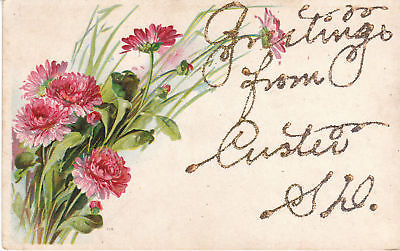 Greetings
from
Custer
S.D.